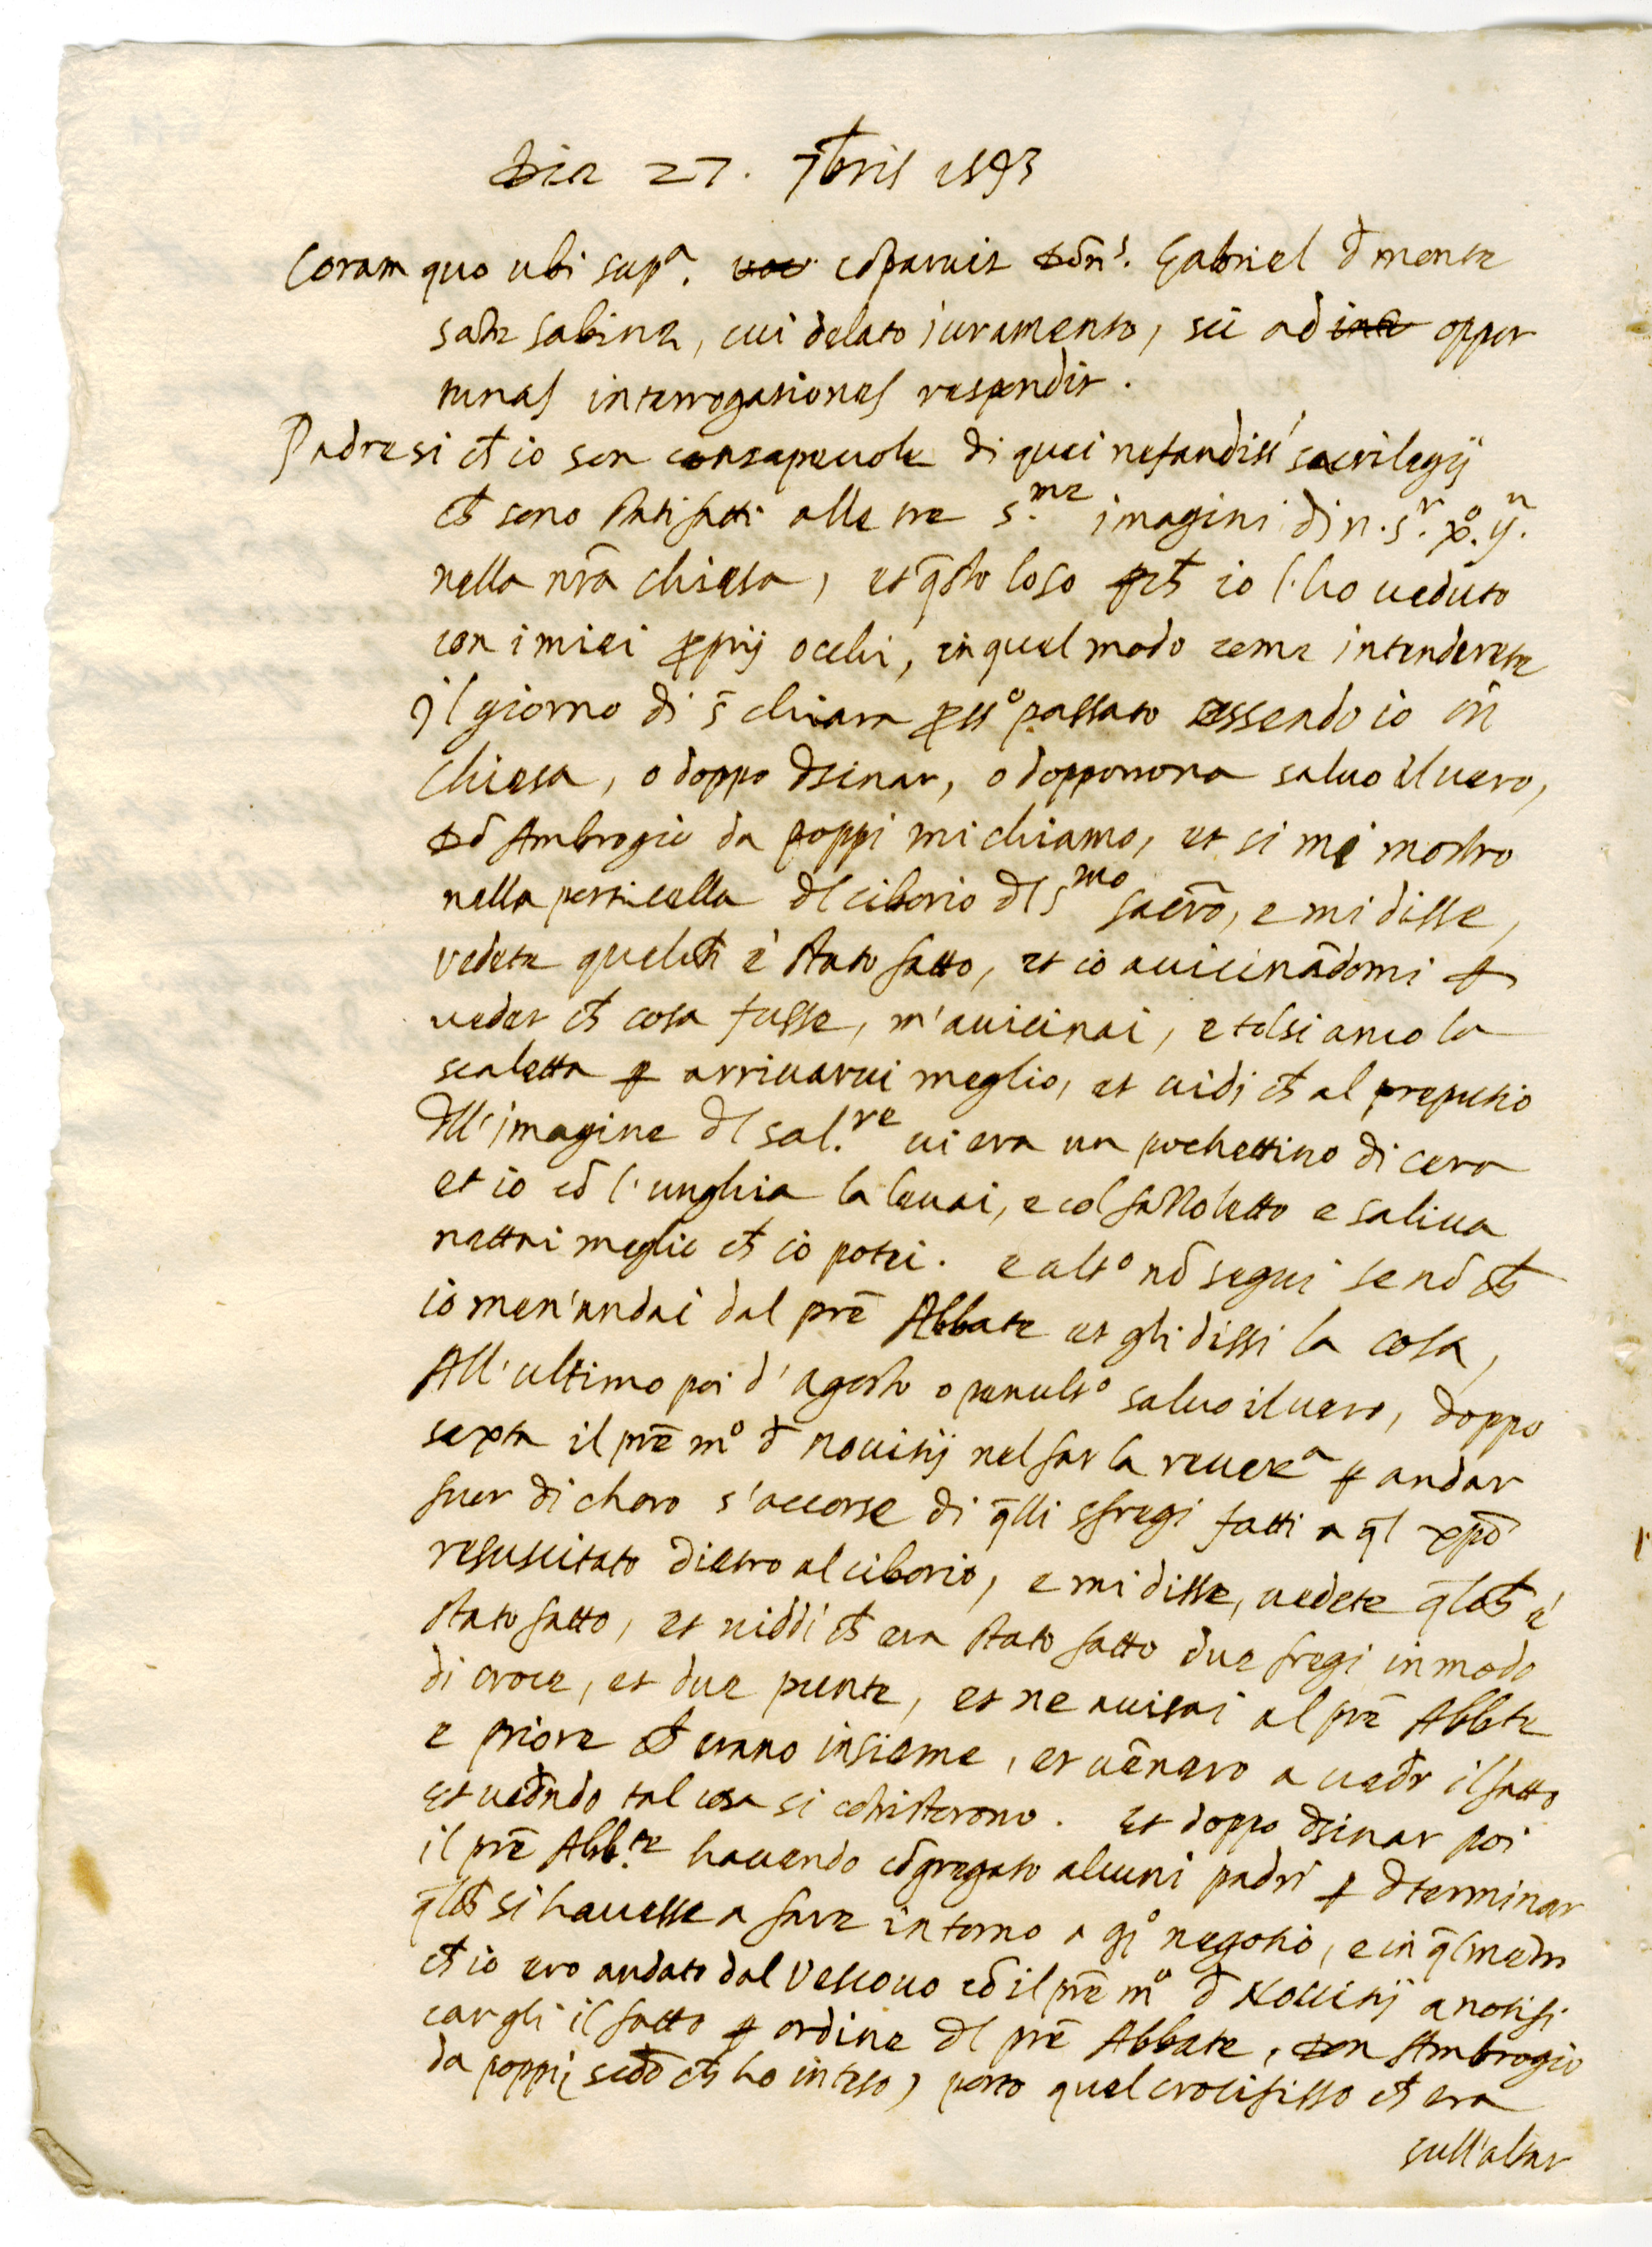 Die 27. 7bris 1593
Coram quo ubi sup.ª voc cõparuit Dõn.s Gabriel đ monte
sācte Sabine, cui delato iuramento, sũ ad inte oppor
tunas interrogationes respondit.
Padre si ch io son consapevole di quei nefandiss' sacrilegij
ch sono stati fatti alle tre s.me imagini di n. s.r xo. yu.
nella nrã chiesa, et q̃sto loso ꝑch io l'ho veduto
con i miei ꝓprij occhi, in quel modo come intenderete
Jl giorno di s̃ chiara ꝓsso passato essendo io in
Chiesa, o doppo đsinar, o dopponona salvo il uero,
Dõ Ambrogio da poppi mi chiamo, et si mi mostro
nella porticella đl ciborio đl smo sacrõ, e mi disse,
vedete quelch è stato fatto, et io avicinãdomi ꝑ
ueder ch cosa fusse, m'avicinai, e tolsi anco la
scaletta ꝑ arrivarvi meglio, et vidi ch al preputio
đll'imagine đl sal.re vi era un pochettino di cera
et io cõ l'unghia la levai, e col fassoletto e saliva
nettai meglio ch io potei. e alto nõ segui se nõ ch
io men'andai dal prẽ Abbate et gli dissi la cosa,
All'ultimo poi d'agosto o penulto salvo il uero, doppo
sexta il prẽ mo đ novitij nel far la reverea ꝑ andar
fuor di choro s'accorse di q̃lli sfregi fatti a q̃l xpõ
resuscitato dietro al ciborio, e mi disse, vedete q̃lch è
stato fatto, et viddi ch era stato fatto due fregi in modo
di croce, et due punte, et ne avisai al prẽ Abbte
e priore ch erano insieme, et uẽnero a ueđr il fatto
et ueđndo tal cosa si cõtristorono. Et doppo đsinar poi
il prẽ Abb.te havendo cõgregato alcuni padri ꝑ đterminar
q̃lch si havesse a fare intorno a q̃o negotio, e in q̃l mentr
ch io ero andato dal Vescovo cõ il prẽ mo đ Novitij a notifi
cargli il fatto ꝑ ordine đl prẽ Abbate, Don Ambrogio
da poppi secõdo ch ho inteso, porto quel crocifisso ch era
sull'altar